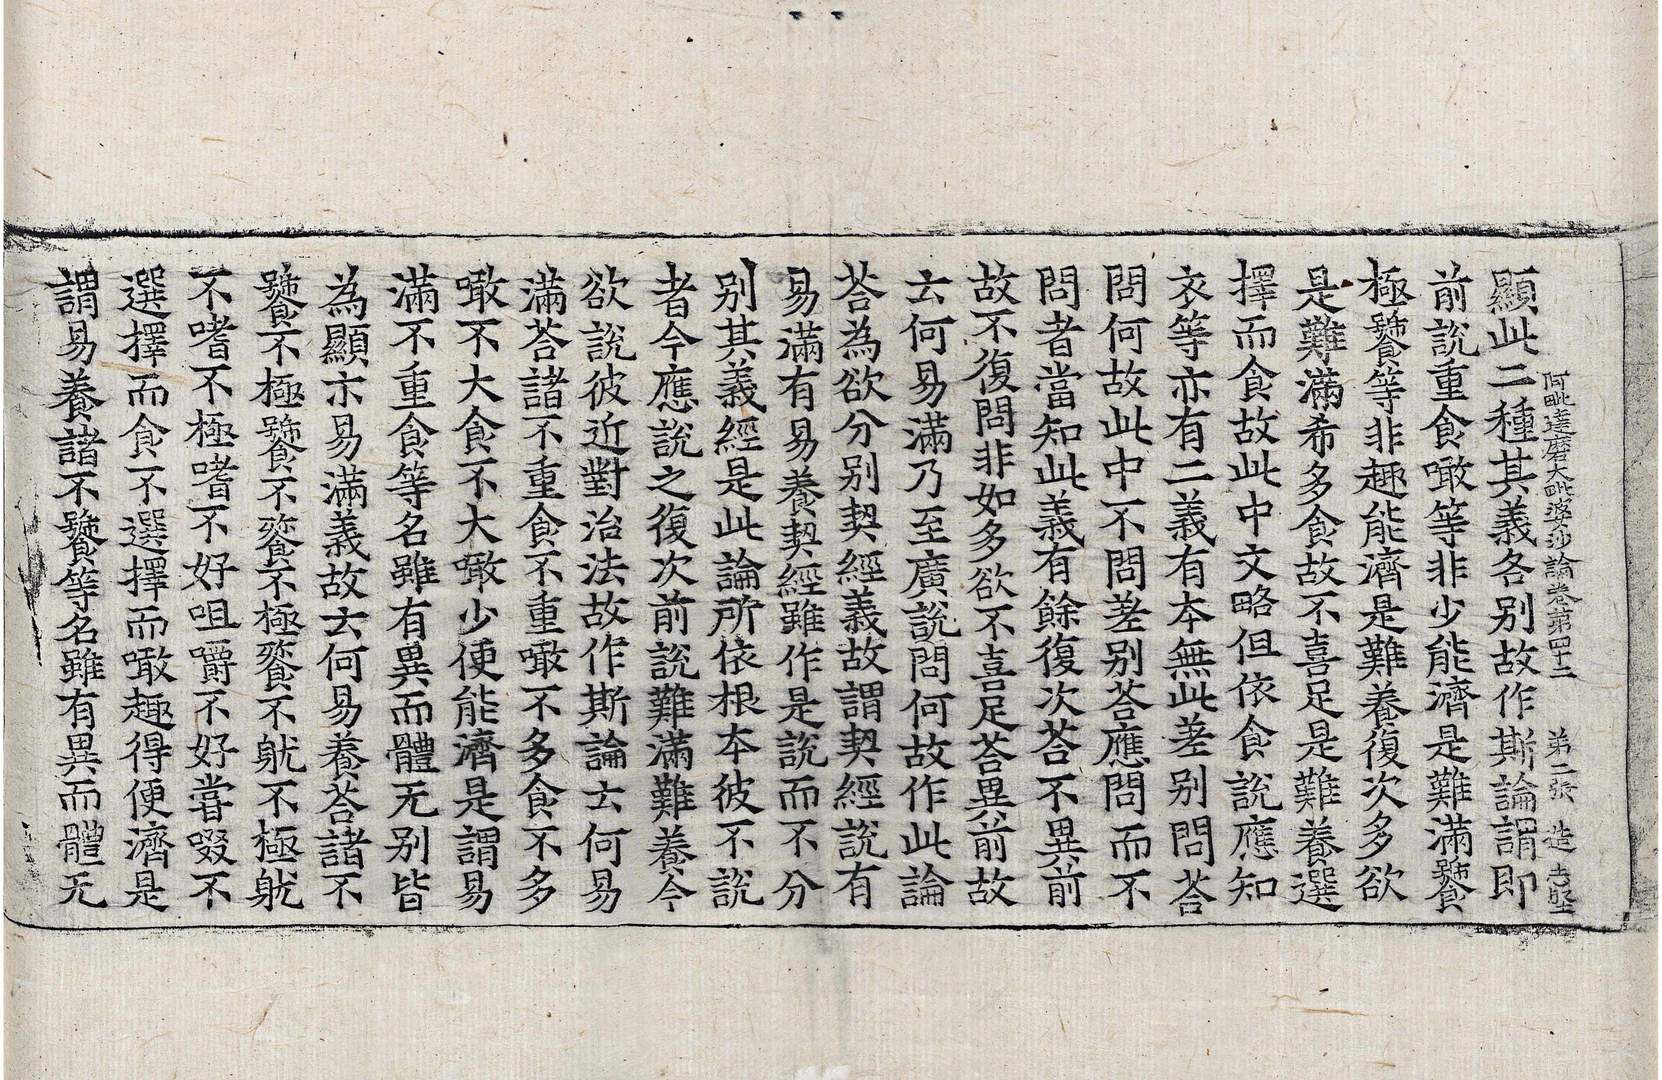 阿毗達磨大毗婆沙論卷第四十二　第二張　造
顯此二種其義各别故作斯論謂即
前說重食噉等非少能濟是難滿饕
極饕等非趣能濟是難養復次多欲
是難滿希多食故不喜足是難養選
擇而食故此中文略但依食說應知
衣等亦有二義有本無此差别問荅
問何故此中不問差别荅應問而不
問者當知此義有餘復次荅不異前
故不復問非如多欲不喜足荅異前故
云何易滿乃至廣說問何故作此論
荅為欲分别契經義故謂契經說有
易滿有易養契經雖作是說而不分
别其義經是此論所依根本彼不說
者今應說之復次前說難滿難養今
欲說彼近對治法故作斯論云何易
滿荅諸不重食不重噉不多食不多
噉不大食不大噉少便能濟是謂易
滿不重食等名雖有異而體无别皆
為顯示易滿義故云何易養荅諸不
饕不極饕不餮不極餮不躭不極躭
不嗜不極嗜不好咀嚼不好嘗啜不
選擇而食不選擇而噉趣得便濟是
謂易養諸不饕等名雖有異而體无